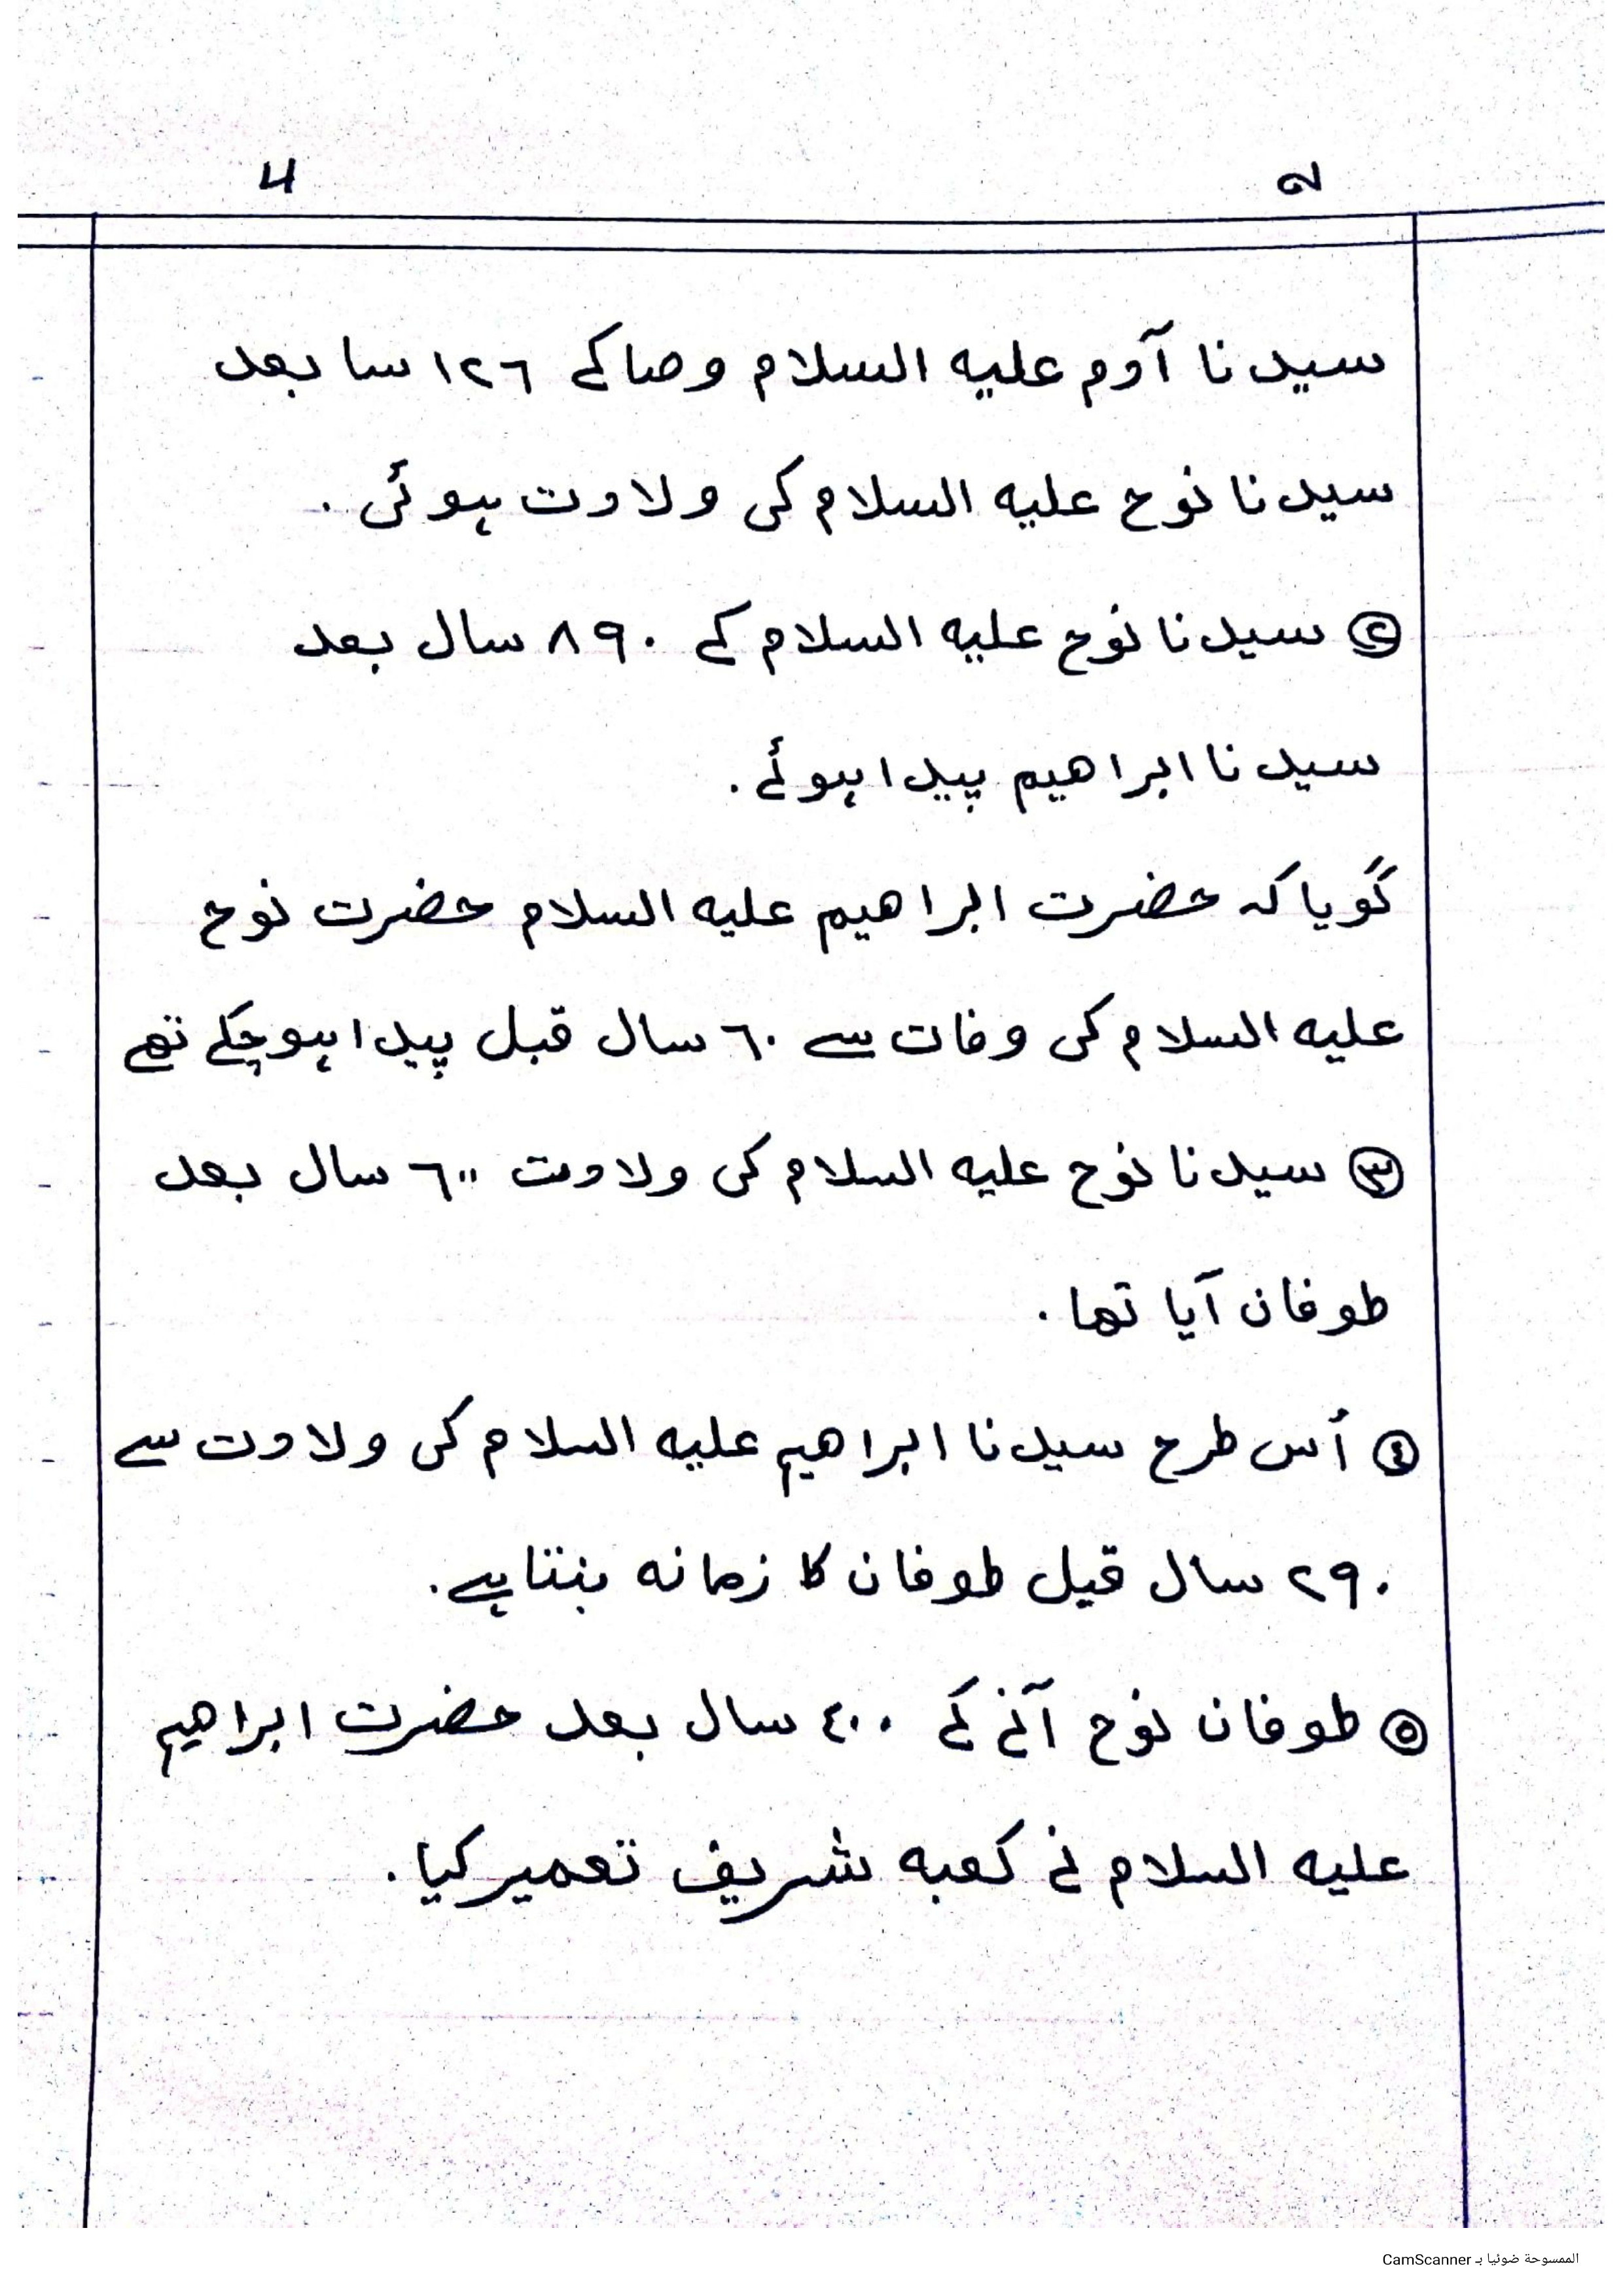 سیدنا آدم علیه السلام وصاکے ١٢٦ سا بعد
سیدنا نوح علیه السلام کی ولادت ہوئی .
② سیدنا نوح علیه السلام کے ٨٩٠ سال بعد
سیدنا ابراھیم پیدا ہوئے .
گویا کہ حضرت ابراھیم علیه السلام حضرت نوح
علیه السلام کی وفات سے ٦٠ سال قبل پیدا ہوچکے تھے
③ سیدنا نوح علیه السلام کی ولادت ٦٠٠ سال بعد
طوفان آیا تھا .
④ أس طرح سیدنا ابراھیم علیه السلام کی ولادت سے
٢٩٠ سال قبل طوفان کا زمانه بنتا ہے.
⑤ طوفان نوح آنے کے ٤٠٠ سال بعد حضرت ابراھیم
علیه السلام نے کعبه شریف تعمیر کیا .
الممسوحة ضوئيا بـ CamScanner